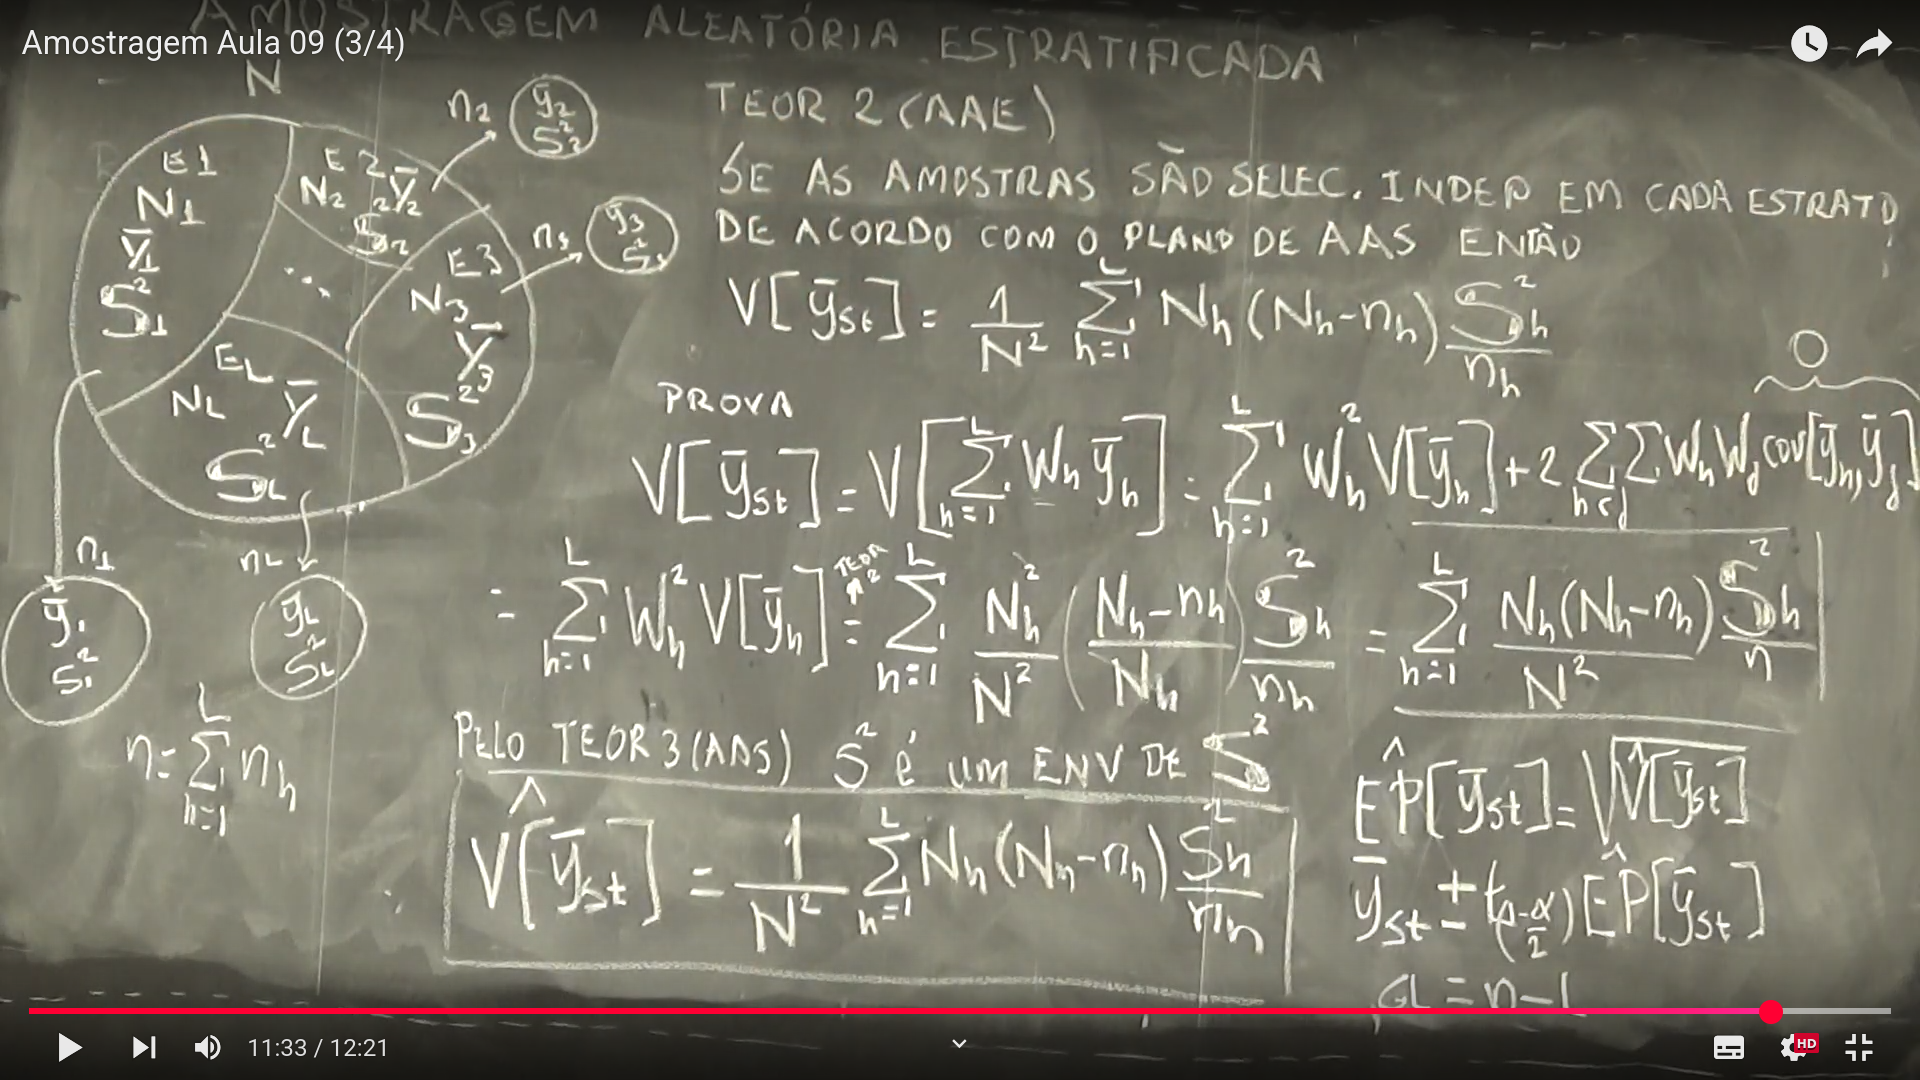 Amostragem Aula 09 (3/4)
AMOSTRAGEM ALEATÓRIA ESTRATIFICADA
N
E1
N1
Ȳ1
S²1
E2
N2 Ȳ2
S²2
...
E3
N3
Ȳ3
S²3
EL
NL ȲL
S²L
n2
ȳ2
S²2
n3
ȳ3
n1
ȳ1
S²1
nL
ȳL
S²L
n = Σ_{h=1}^{L} nh
TEOR 2 (AAE)
SE AS AMOSTRAS SÃO SELEC. INDEP EM CADA ESTRATO
DE ACORDO COM O PLANO DE AAS ENTÃO
V[ȳst] = 1/N² Σ_{h=1}^{L} Nh (Nh-nh) S²h/nh
PROVA
0
V[ȳst] = V[Σ_{h=1}^{L} Wh ȳh] = Σ_{h=1}^{L} W²h V[ȳh] + 2 ΣΣ_{h<j} Wh Wj cov[ȳh, ȳj]
TEOR 2
= Σ_{h=1}^{L} W²h V[ȳh] = Σ_{h=1}^{L} N²h/N² ((Nh-nh)/Nh) S²h/nh = Σ_{h=1}^{L} Nh(Nh-nh)/N² S²h/n
PELO TEOR 3 (AAS) S² é um ENV DE S²
V̂[ȳst] = 1/N² Σ_{h=1}^{L} Nh (Nh-nh) S²h/nh
ÊP[ȳst] = √V̂[ȳst]
ȳst ± t(1-α/2) ÊP[ȳst]
GL = n-1
11:33 / 12:21
HD